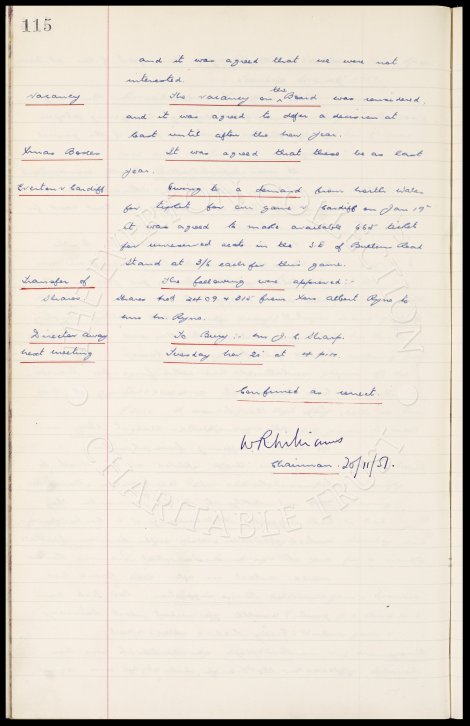 115
and it was agreed that we were not
interested.
Vacancy The vacancy on the Board was considered,
and it was agreed to defer a decision at
least until after the new year.
Xmas Boxes It was agreed that these be as last
year.
Everton v Cardiff Owing to a demand from North Wales
for tickets for our game v Cardiff on Jan 19th
it was agreed to make available 665 tickets
for unreserved seats in the S.E of Bullens Road
Stand at 3/6 each for this game.
Transfer of The following were approved:-
Shares. Shares Nos 2409 & 315 from Albert Ryno to
Mrs M. Ryno.
Director Away To Bury:- Mr J. C. Sharp.
Next meeting Tuesday Nov 20 at 4 p.m.
Confirmed as correct.
W R Williams
Chairman. 20/11/51.
THE EVERTON COLLECTION
CHARITABLE TRUST